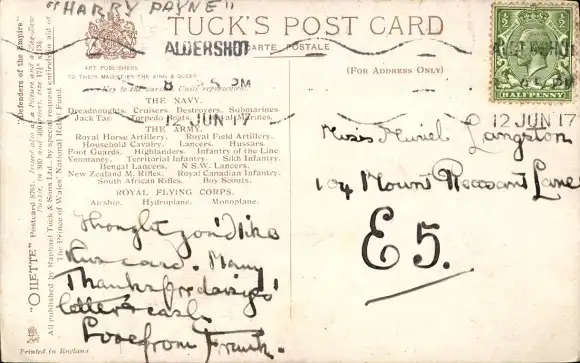 "HARRY PAYNE"
TUCK'S POST CARD
CARTE POSTALE
ART PUBLISHERS
TO THEIR MAJESTIES THE KING & QUEEN
(FOR ADDRESS ONLY)
ALDERSHOT
PM
12 JUN 17
12 JUN 17
HALFPENNY
Key to the various Units represented.
THE NAVY.
Dreadnoughts. Cruisers. Destroyers. Submarines.
Jack Tar. Torpedo Boats. Royal Marines.
THE ARMY.
Royal Horse Artillery. Royal Field Artillery.
Household Cavalry. Lancers. Hussars.
Foot Guards. Highlanders. Infantry of the Line.
Yeomanry. Territorial Infantry. Sikh Infantry.
Bengal Lancers. N.S.W. Lancers.
New Zealand M. Rifles. Royal Canadian Infantry.
South African Rifles. Boy Scouts.
ROYAL FLYING CORPS.
Airship. Hydroplane. Monoplane.
"OILETTE" Postcard 8761.
"Defenders of the Empire"
All published by Raphael Tuck & Sons Ltd., by special request entirely in aid of
The Prince of Wales' National Relief Fund.
Printed in England
Thought you'd like
this card. Many
Thanks for
letter & cash
Love from Frank.
Miss Muriel Langston
104 Mount Pleasant Lane
E 5.